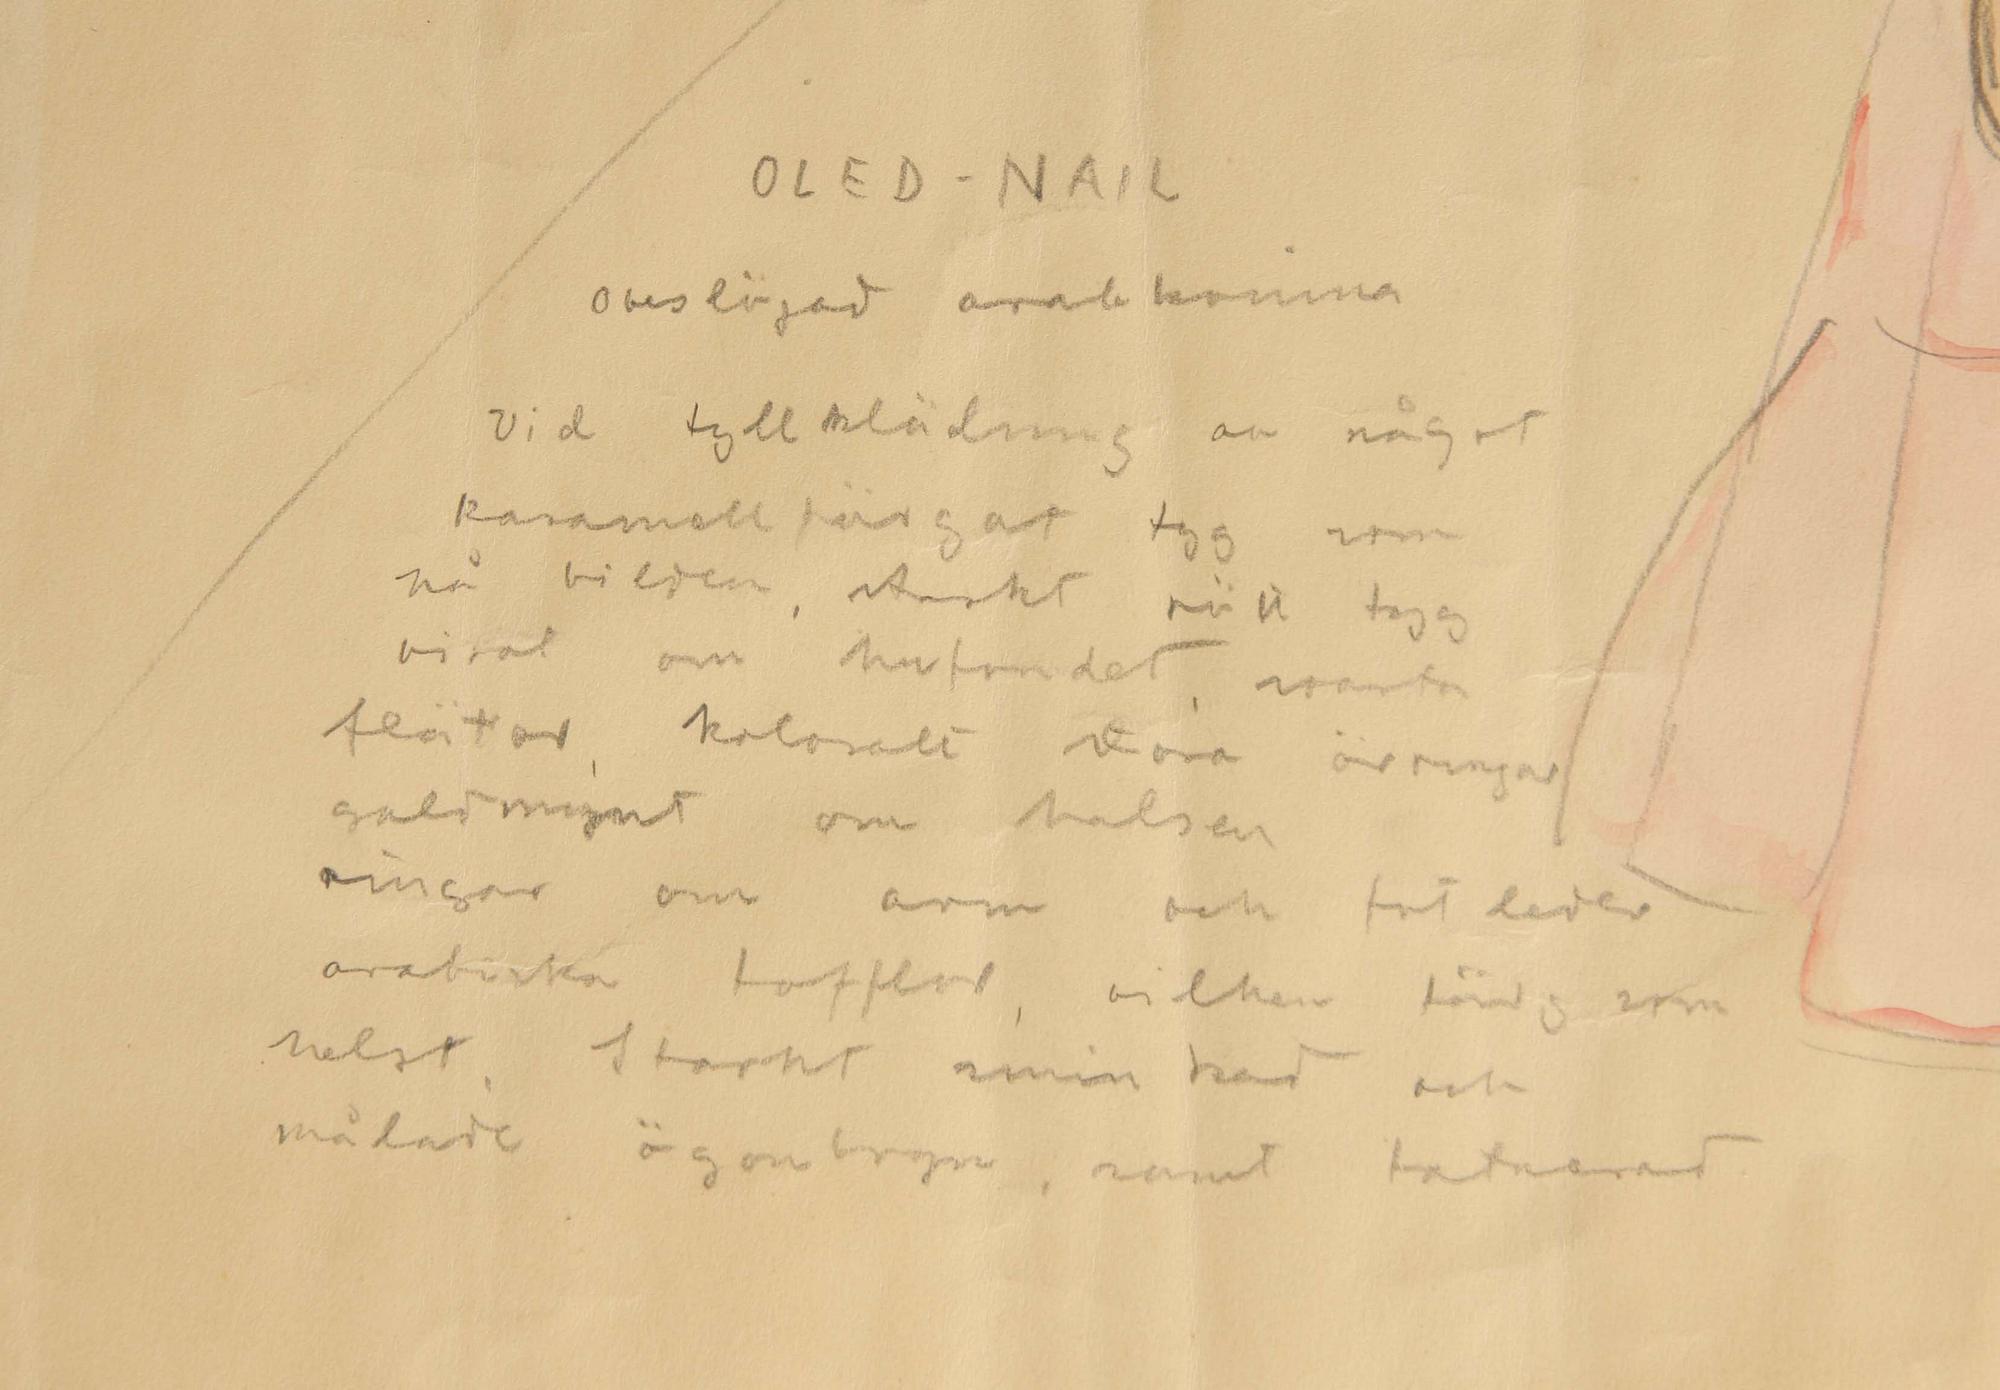 OLED-NAIL
obeslöjad arabkvinna
vid tyllklädning av något
karamellfärgat tyg som
på bilden, starkt rött tyg
virat om huvudet, svarta
flätor, kolosalt stora örringar
guldmynt om halsen
ringar om arm och fotleder
arabiska tofflor, vilken färg som
helst. Starkt sminkad och
målade ögonbryn, samt tatuerad